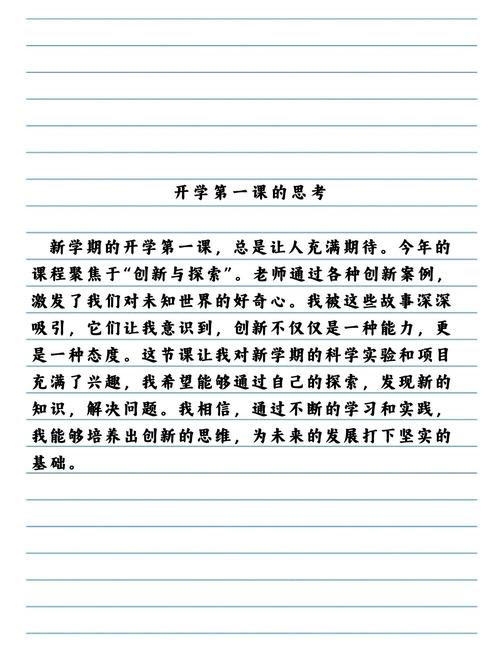 开学第一课的思考
新学期的开学第一课，总是让人充满期待。今年的
课程聚焦于“创新与探索”。老师通过各种创新案例，
激发了我们对未知世界的好奇心。我被这些故事深深
吸引，它们让我意识到，创新不仅仅是一种能力，更
是一种态度。这节课让我对新学期的科学实验和项目
充满了兴趣，我希望能够通过自己的探索，发现新的
知识，解决问题。我相信，通过不断的学习和实践，
我能够培养出创新的思维，为未来的发展打下坚实的
基础。